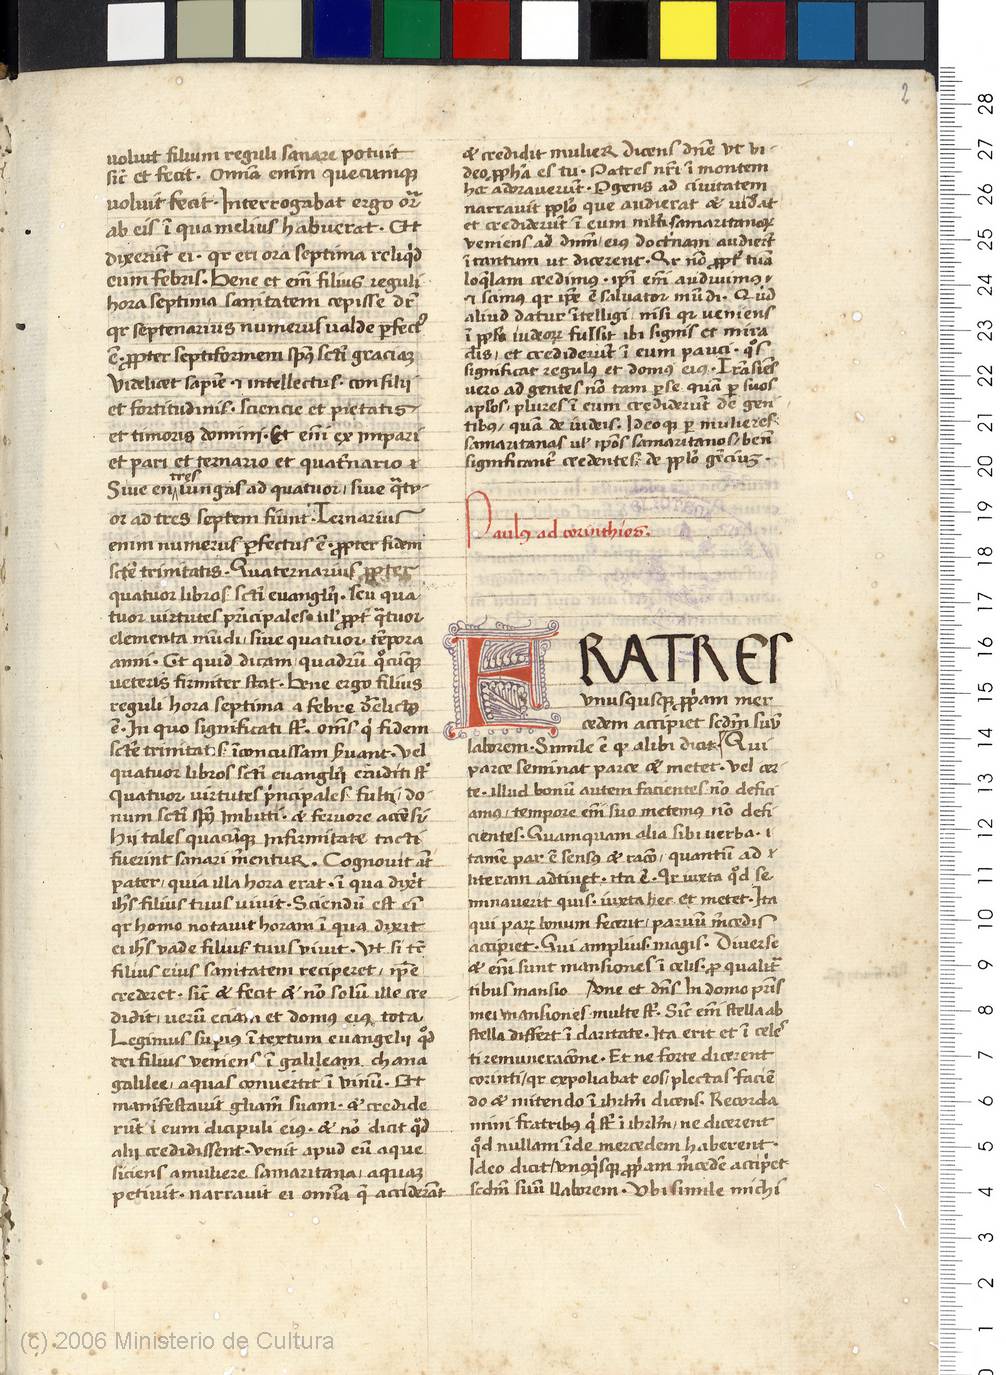 2
uoluit filium reguli sanare potuit
sic̄ et fecit. Omīa enim quecumqꝫ
uoluit fecit. Interrogabat ergo or̄
ab eis ī qua melius habuerat. Et
dixerūt ei. qr eri ora septima reliq̄d
eum febris. Bene et em̄ filius reguli
hora septima sanitatem cepisse dr̄
qr septenarius numerus ualde ꝑfect9
ē. ꝓpter septiformem spūs sc̄ti graciaꝫ
Videlicet sapiē ⁊ intellectus. consilii
et fortitudinis. sciencie et pietatis
et timoris domini. Et em̄ ex impari
et pari et ternario et quat̄nario ⁊
tres
Siue em̄ iungas ad quatuor, siue q̄tu-
or ad tres septem fiūnt. Ternarius
enim numerus ꝑfectus ē. ꝓpter fidem
sct̄e trinitatis. Quaternarius ꝓpter
quatuor libros sc̄ti euanglii. seu qua
tuor uirtutes prīcipales. ul' ꝓpt' q̄tuor
elementa mūdi, siue quatuor tēpora
anni. Et quid dicam quadrū q̄cūqꝫ
ueteris firmiter stat. Bene ergo filius
reguli hora septima a febre d̄elict9
ē. In quo significati st̄. om̄s q̄ fidem
sct̄e trinitatis īconcussam s̄uant. Vel
quatuor libros sc̄ti euanglii eruditi st̄
Quatuor uirtutes p̄ncipales fulti, do
num sc̄ti spūs imbuti. & feruore accēsi
hii tales quacūqꝫ infirmitate tacti
fuerint sanari mentuR. Cognouit at̄
pater, quia illa hora erat. ī qua dixit
ih̄s filius tuus uiuit. Sciendū est ei
qr homo notauit horam ī qua dixit
ei ih̄s uade filius tuus uiuit. Vt si tē
filius eius sanitatem reciperet, ip̄e
crederet. sic̄ & fecit & nō solū ille cre
didit, uerū eciam et domus eiꝰ tota
Legimus suꝑius ī textum euangelii q̄d
dei filius ueniens ī galileam chana
galilee, aquas conuertit ī uinū. Et
manifestauit gliam suam. & credide
rūt ī eum dicipuli eiꝰ. & nō dicit q̄d
alii credidissent. Venit apud eū aque
siciens a muliere samaritana, aquaꝫ
petiuit. narrauit ei omīa q̄ acciderant
& credidit mulieR dicens dn̄e ut ui-
deo ꝓph̄a es tu. Patres nr̄i ī montem
hoc adorauerūt. Pgens ad ciuitatem
narrauit pplo que audierat & uidāt
et crediderūt ī eum multi samaritanoꝝ
ueniens ad dn̄m eiꝰ doctnam audiēt
ītantum ut dicerent. Qr nō ꝓpt' tuā
loq̄lam credimꝰ. ip̄i em̄ audiuimꝰ,
⁊ scimꝰ qr ip̄e ē saluator mūdi. Quid
aliud datur ītelligi, nisi qr ueniens
ī pplo iudeoꝝ fulsit ibi signis et mira
clis, et crediderūt ī eum pauci. q̄s
significat regulꝰ et domꝰ eiꝰ. Trāsiēs
uero ad gentes nō tam ꝑ se. quā ꝑ suos
apl̄os, plures ī eum crediderūt de gen
tibꝰ, quā de iudeis. Ideoqꝫ ꝑ mulieres
samaritanas ul' ip̄os samaritanos, bene
significant' credentes, de pplo gēciuꝫ.
Paulꝰ ad corinthios.
FRATRES
Vnusquisqꝫ ꝓpam mer
cedem accipiet scdm̄ suū
laborem. Simile ē qꝫ alibi dicit Qui
parce seminat parce & metet. Vel cer
te. illud bonū autem facientes nō defici
amꝰ, tempore em̄ suo metemꝰ nō defi
cientes. Quamquam alia sibi uerba. ī
tamē par ē sensꝰ & raco, quantū ad
literam adtinet. ita ē. Qr iuxta q̄d se
minauerit quis. iuxta hec et metet. Ita
qui parꝫ bonum fecerit, paruū m̄cedis
accipiet. Qui amplius. magis. Diuerse
& em̄ sunt mansiones ī celis. ꝓ qualit̄
tibus mansio Pone et dn̄s In domo pr̄is
mei mansiones multe st̄. Sic em̄ stella ab
stella differt ī claritate. Ita erit et ī celes
ti remuneracōne. Et ne forte dicerent
corinti, qr expoliabat eos, plectas faciē
do & mitendo ī ihrlm̄ dicens. Recorda
mini fratribꝰ q̄ st̄ ī ihrlm̄, ne dicerent
q̄d nullam īde mercedem haberent.
Ideo dicit, vnꝰq̄sqꝫ ꝓpam m̄cedē accipiet
scdm̄ suū llaborem. Vbi simile michi
(c) 2006 Ministerio de Cultura
28
27
26
25
24
23
22
21
20
19
18
17
16
15
14
13
12
11
10
9
8
7
6
5
4
3
2
1
0